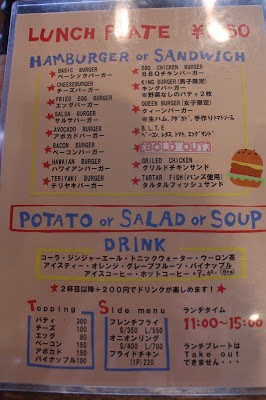 LUNCH PLATE
HAMBURGER or SANDWICH
★ BASIC BURGER
ベーシックバーガー
★ CHEESEBURGER
チーズバーガー
★ FRIED EGG BURGER
エッグバーガー
★ SALSA BURGER
サルサバーガー
★ AVOCADO BURGER
アボカドバーガー
★ BACON BURGER
ベーコンバーガー
★ HAWAIIAN BURGER
ハワイアンバーガー
★ TERIYAKI BURGER
テリヤキバーガー
★ BBQ CHICKEN BURGER
BBQチキンバーガー
★ KING BURGER (男子限定)
キングバーガー
※野菜なしのパティ2枚
★ QUEEN BURGER (女子限定)
クィーンバーガー
※生ハム、アボカド、手作りトマトソース
★ B,L,T,E
ベーコン、レタス、トマト、エッグサンド
SOLD OUT!
★ GRILED CHICKEN
グリルドチキンサンド
★ TARTAR FISH (バンズ使用)
タルタルフィッシュサンド
POTATO or SALAD or SOUP
DRINK
コーラ・ジンジャーエール・トニックウォーター・ウーロン茶
アイスティー・オレンジ・グレープフルーツ・パイナップル
アイスコーヒー・ホットコーヒー
★2杯目以降+200円でドリンクが楽しめます!
Topping
パティ 300
チーズ 100
エッグ 80
ベーコン 150
アボカド 150
パイナップル 100
Side menu
フレンチフライ
S/350 L/550
オニオンリング
S/400 L/700
フライドチキン
(1P) 220
ランチタイム
11:00~15:00
ランチプレートは
Take out
できません・・・